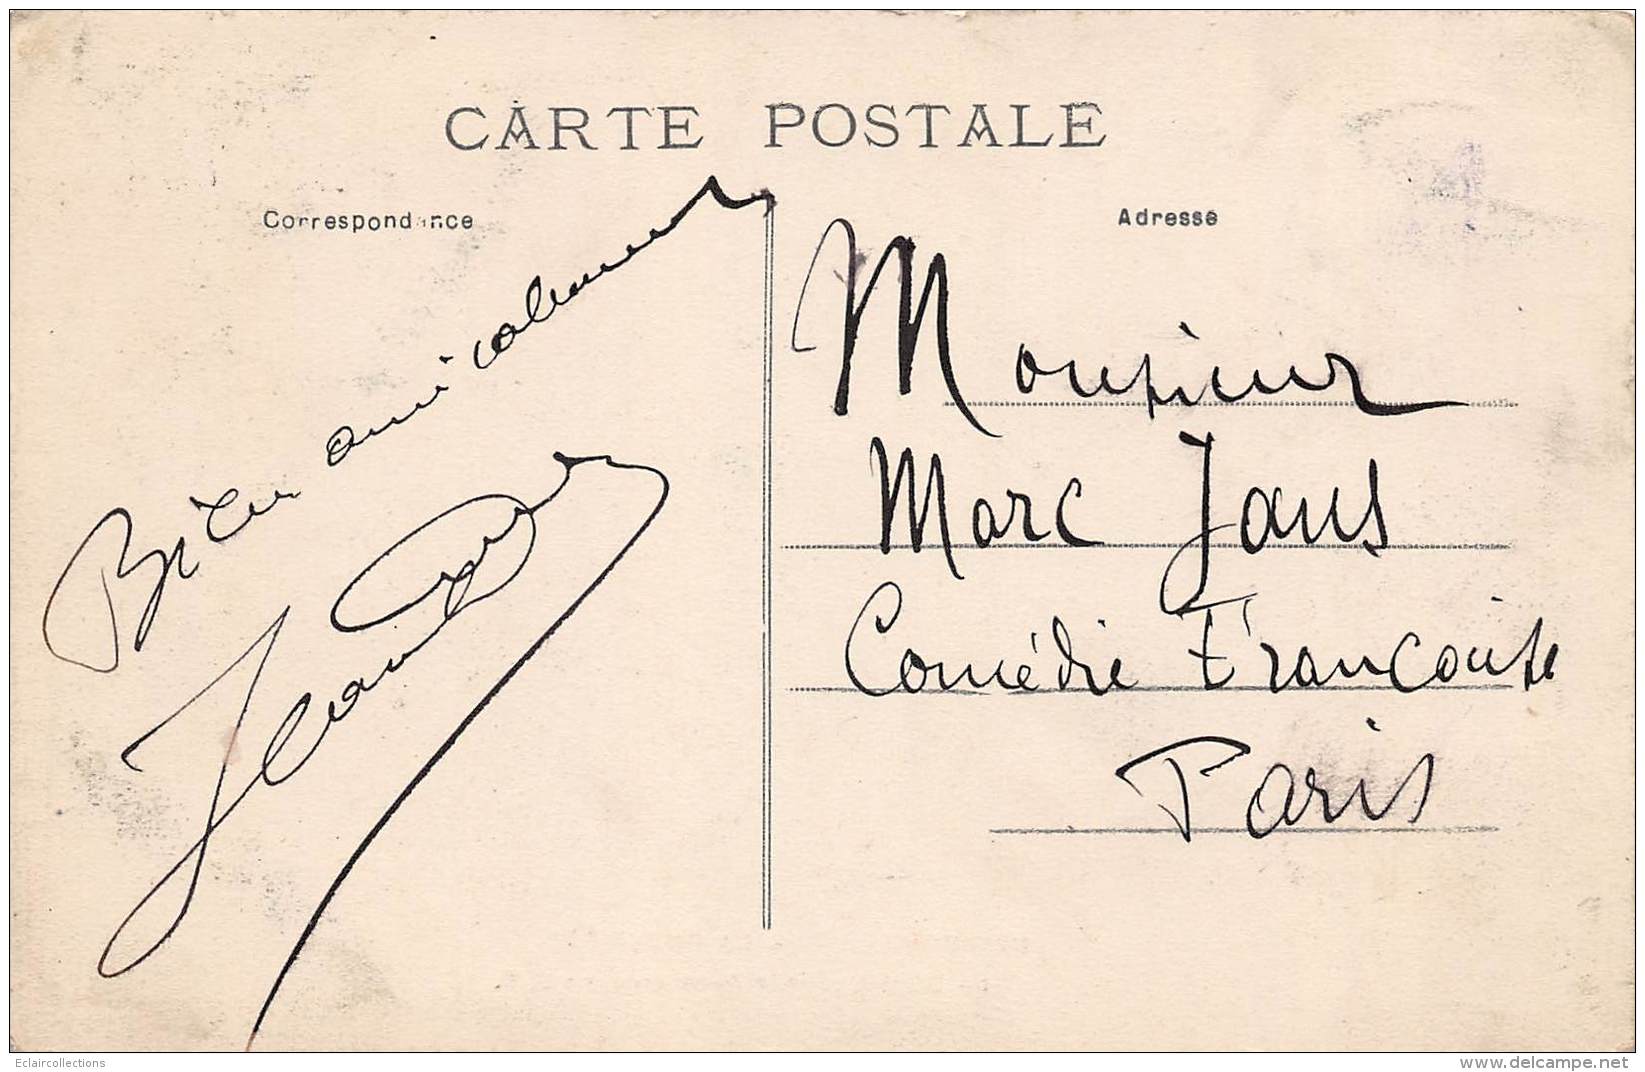 CARTE POSTALE
Correspondance
Adresse
Bien amicalement
Monsieur
Marc Jans
Comédie Française
Paris
Eclaircollections
www.delcampe.net